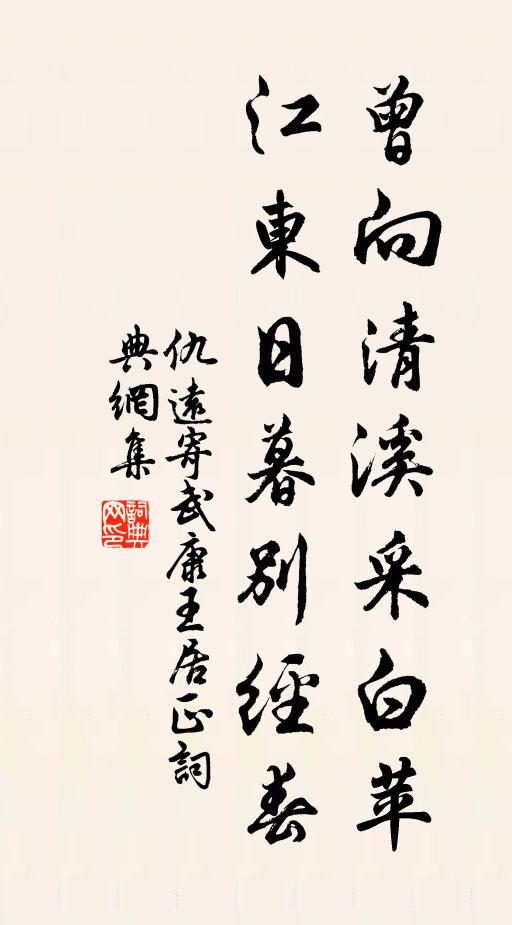 曾向清溪采白苹
江東日暮別經春
仇遠寄武康王居正詞
典網集
詞典网印